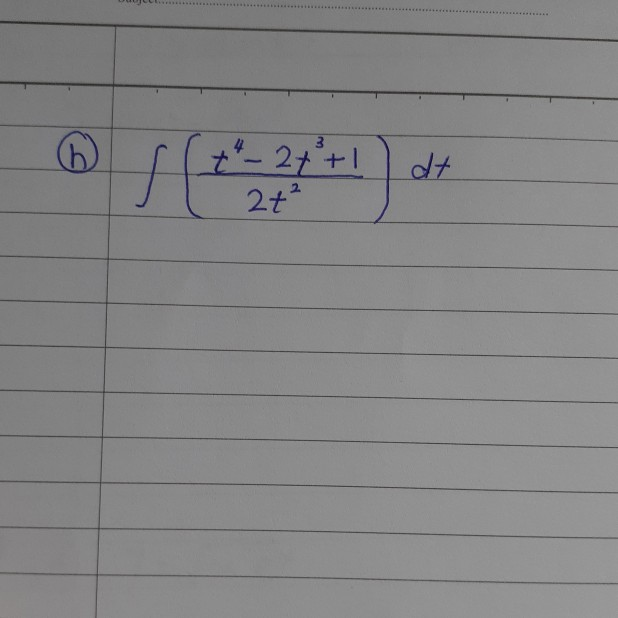 Subject:
(h) ∫ ( (t⁴ - 2t³ + 1) / 2t² ) dt